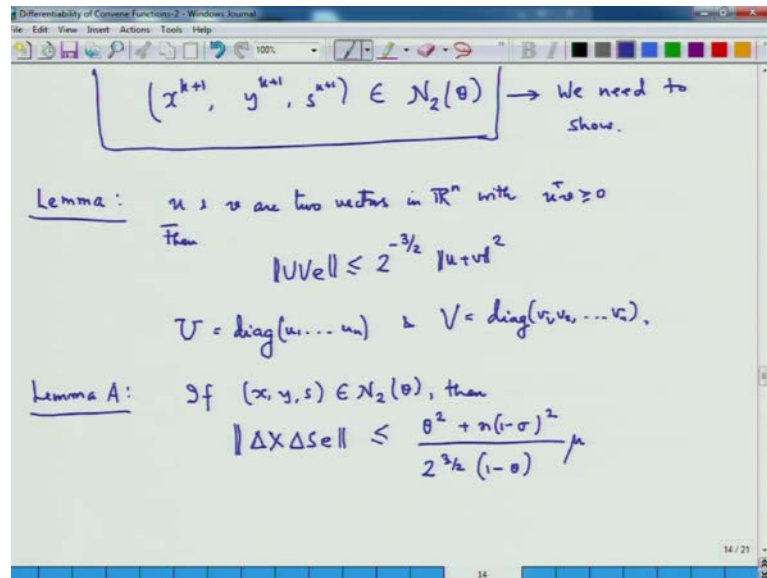 Differentiability of Convene Functions-2 - Windows Journal
File Edit View Insert Actions Tools Help
100% B I
(x^{k+1}, y^{k+1}, s^{k+1}) ∈ N_2(θ) → We need to
show.
Lemma: u & v are two vectors in ℝ^n with u^T v ≥ 0
Then
‖UVe‖ ≤ 2^{-3/2} ‖u+v‖^2
U = diag(u_1 ... u_n) & V = diag(v_1, v_2, ... v_n).
Lemma A: If (x, y, s) ∈ N_2(θ), then
‖ΔXΔSe‖ ≤ \frac{θ^2 + n(1-σ)^2}{2^{3/2} (1-θ)} μ
14 / 21
14